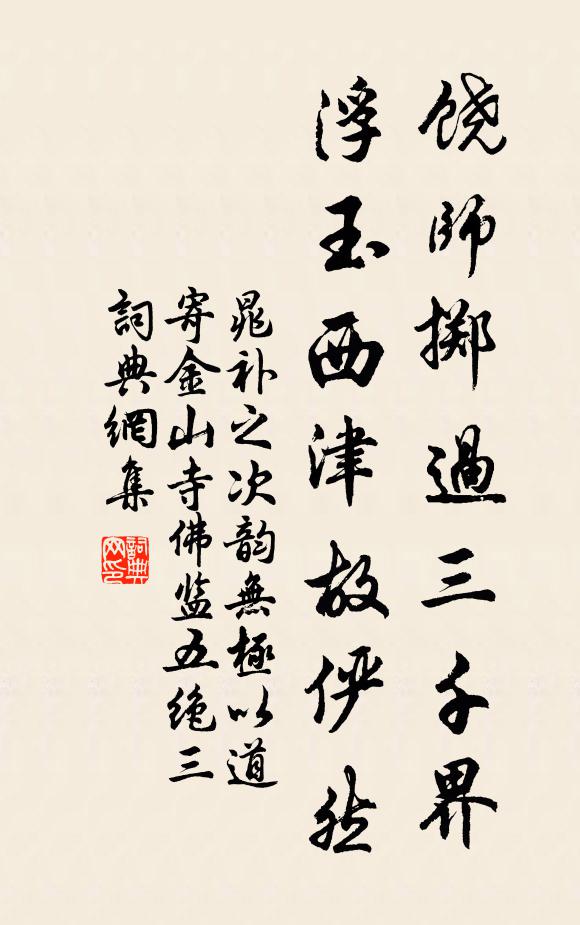 饶師擲過三千界
浮玉西津故俨然
晁补之次韵無極以道
寄金山寺佛监五绝三
詞典網集
詞典网印